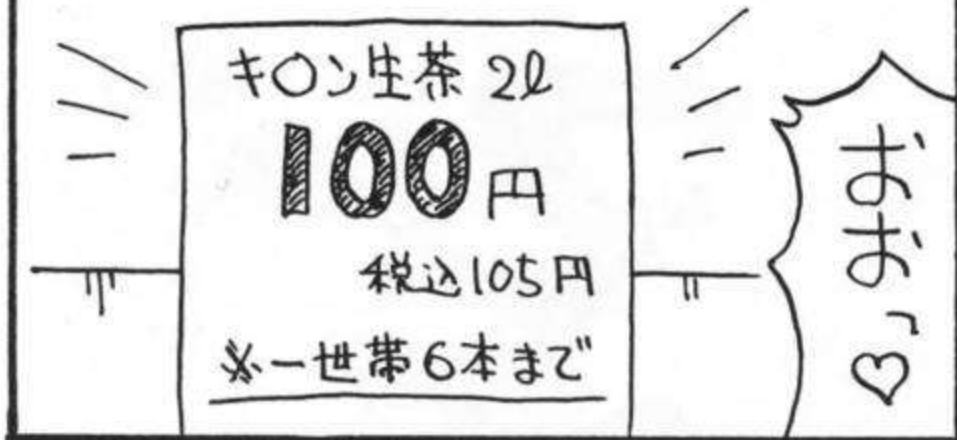 キ〇ン生茶 2ℓ
100円
税込105円
※一世帯6本まで
おおっ♡